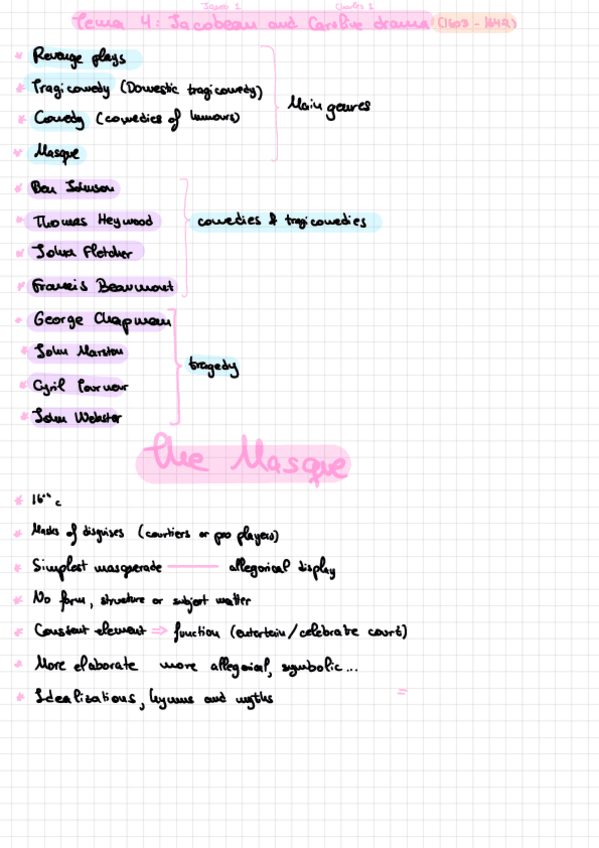 Jacob 1 Charles 1
Tema 4: Jacobean and Caroline drama (1603 - 1642)
* Revenge plays
* Tragicomedy (Domestic tragicomedy)
Main genres
* Comedy (comedies of humours)
* Masque
* Ben Johnson
* Thomas Heywood
comedies & tragicomedies
* John Fletcher
* Francis Beaumont
* George Chapman
* John Marston
tragedy
* Cyril Tourneur
* John Webster
The Masque
* 16th c
* Masks of disguises (courtiers or pro players)
* Simplest masquerade — allegorical display
* No form, structure or subject matter
* Constant element => function (entertain/celebrate court)
* More elaborate more allegorical, symbolic...
* Idealizations, hymns and myths =